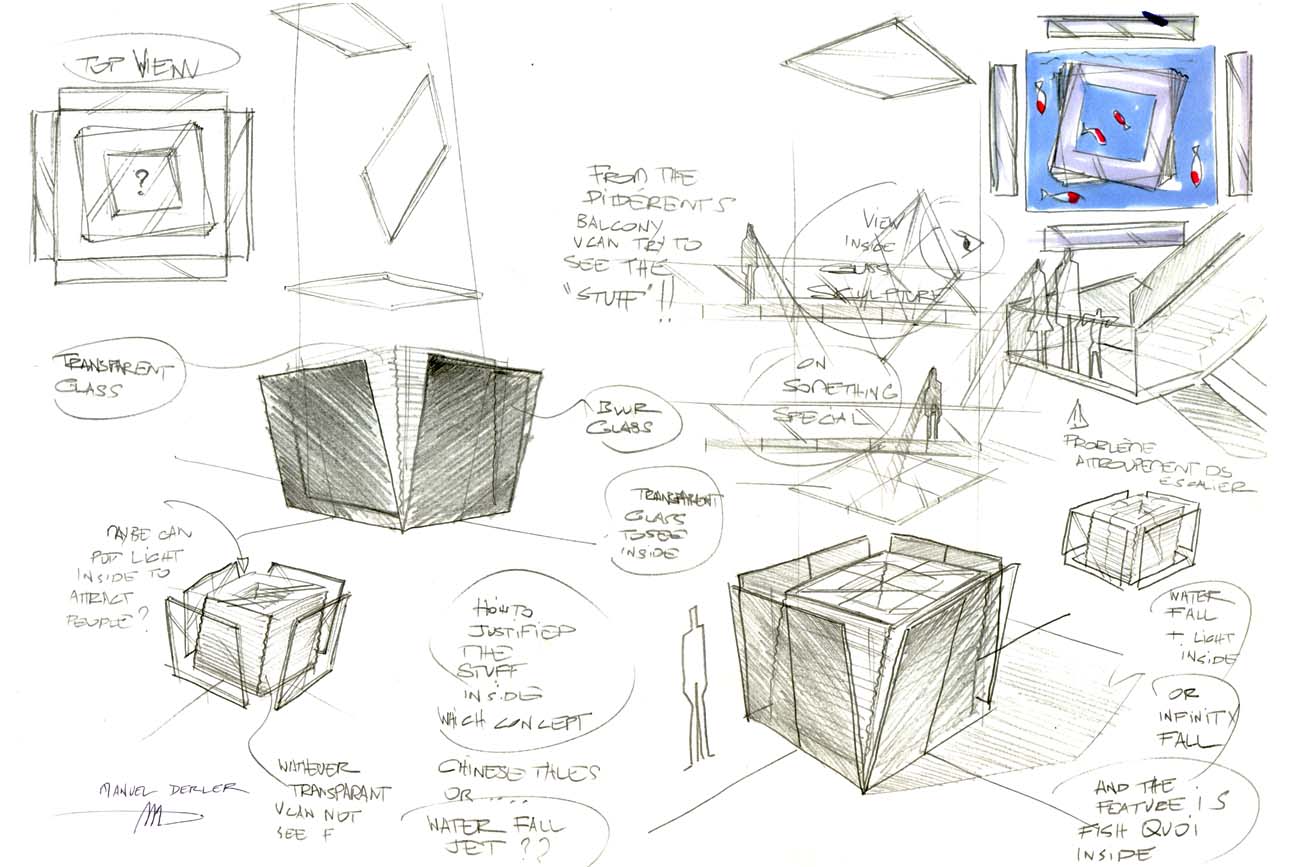 TOP VIEW
?
TRANSPARENT
GLASS
BLUR
GLASS
FROM THE
DIDÉRENTS
BALCONY
VCAN TRY TO
SEE THE
"STUFF"!!
VIEW
INSIDE
GLASS
SCULPTURE
ON
SOMETHING
SPECIAL
TRANSPARENT
GLASS
TO SEE
INSIDE
PROBLÈME
ATTROUPEMENT DS
ESCALIER
MAYBE CAN
PUT LIGHT
INSIDE TO
ATTRACT
PEOPLE?
HOW TO
JUSTIFIED
THE
STUFF
INSIDE
WHICH CONCEPT
CHINESE TALES
OR ....
WATER FALL
JET ??
WATHEVER
TRANSPARANT
VCAN NOT
SEE F
MANUEL DERLER
WATER
FALL
+ LIGHT
INSIDE
OR
INFINITY
FALL
AND THE
FEATURE IS
FISH QUOI
INSIDE